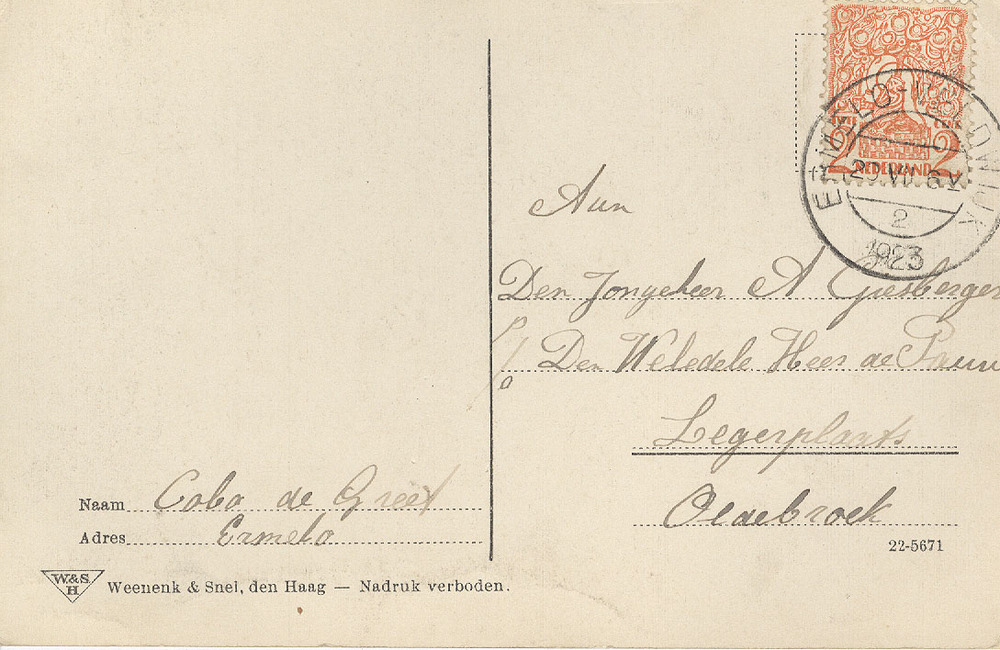 2 CENT CENT 2
NEDERLAND
ERMELO-VELDWIJK
2
1923
Aan
Den Jongeheer A Giesberger
p/o Den Weledele Heer de
Legerplaats
Oldebroek
22-5671
Naam Cobo de Greef
Adres Ermelo
W.&S. H
Weenenk & Snel, den Haag — Nadruk verboden.